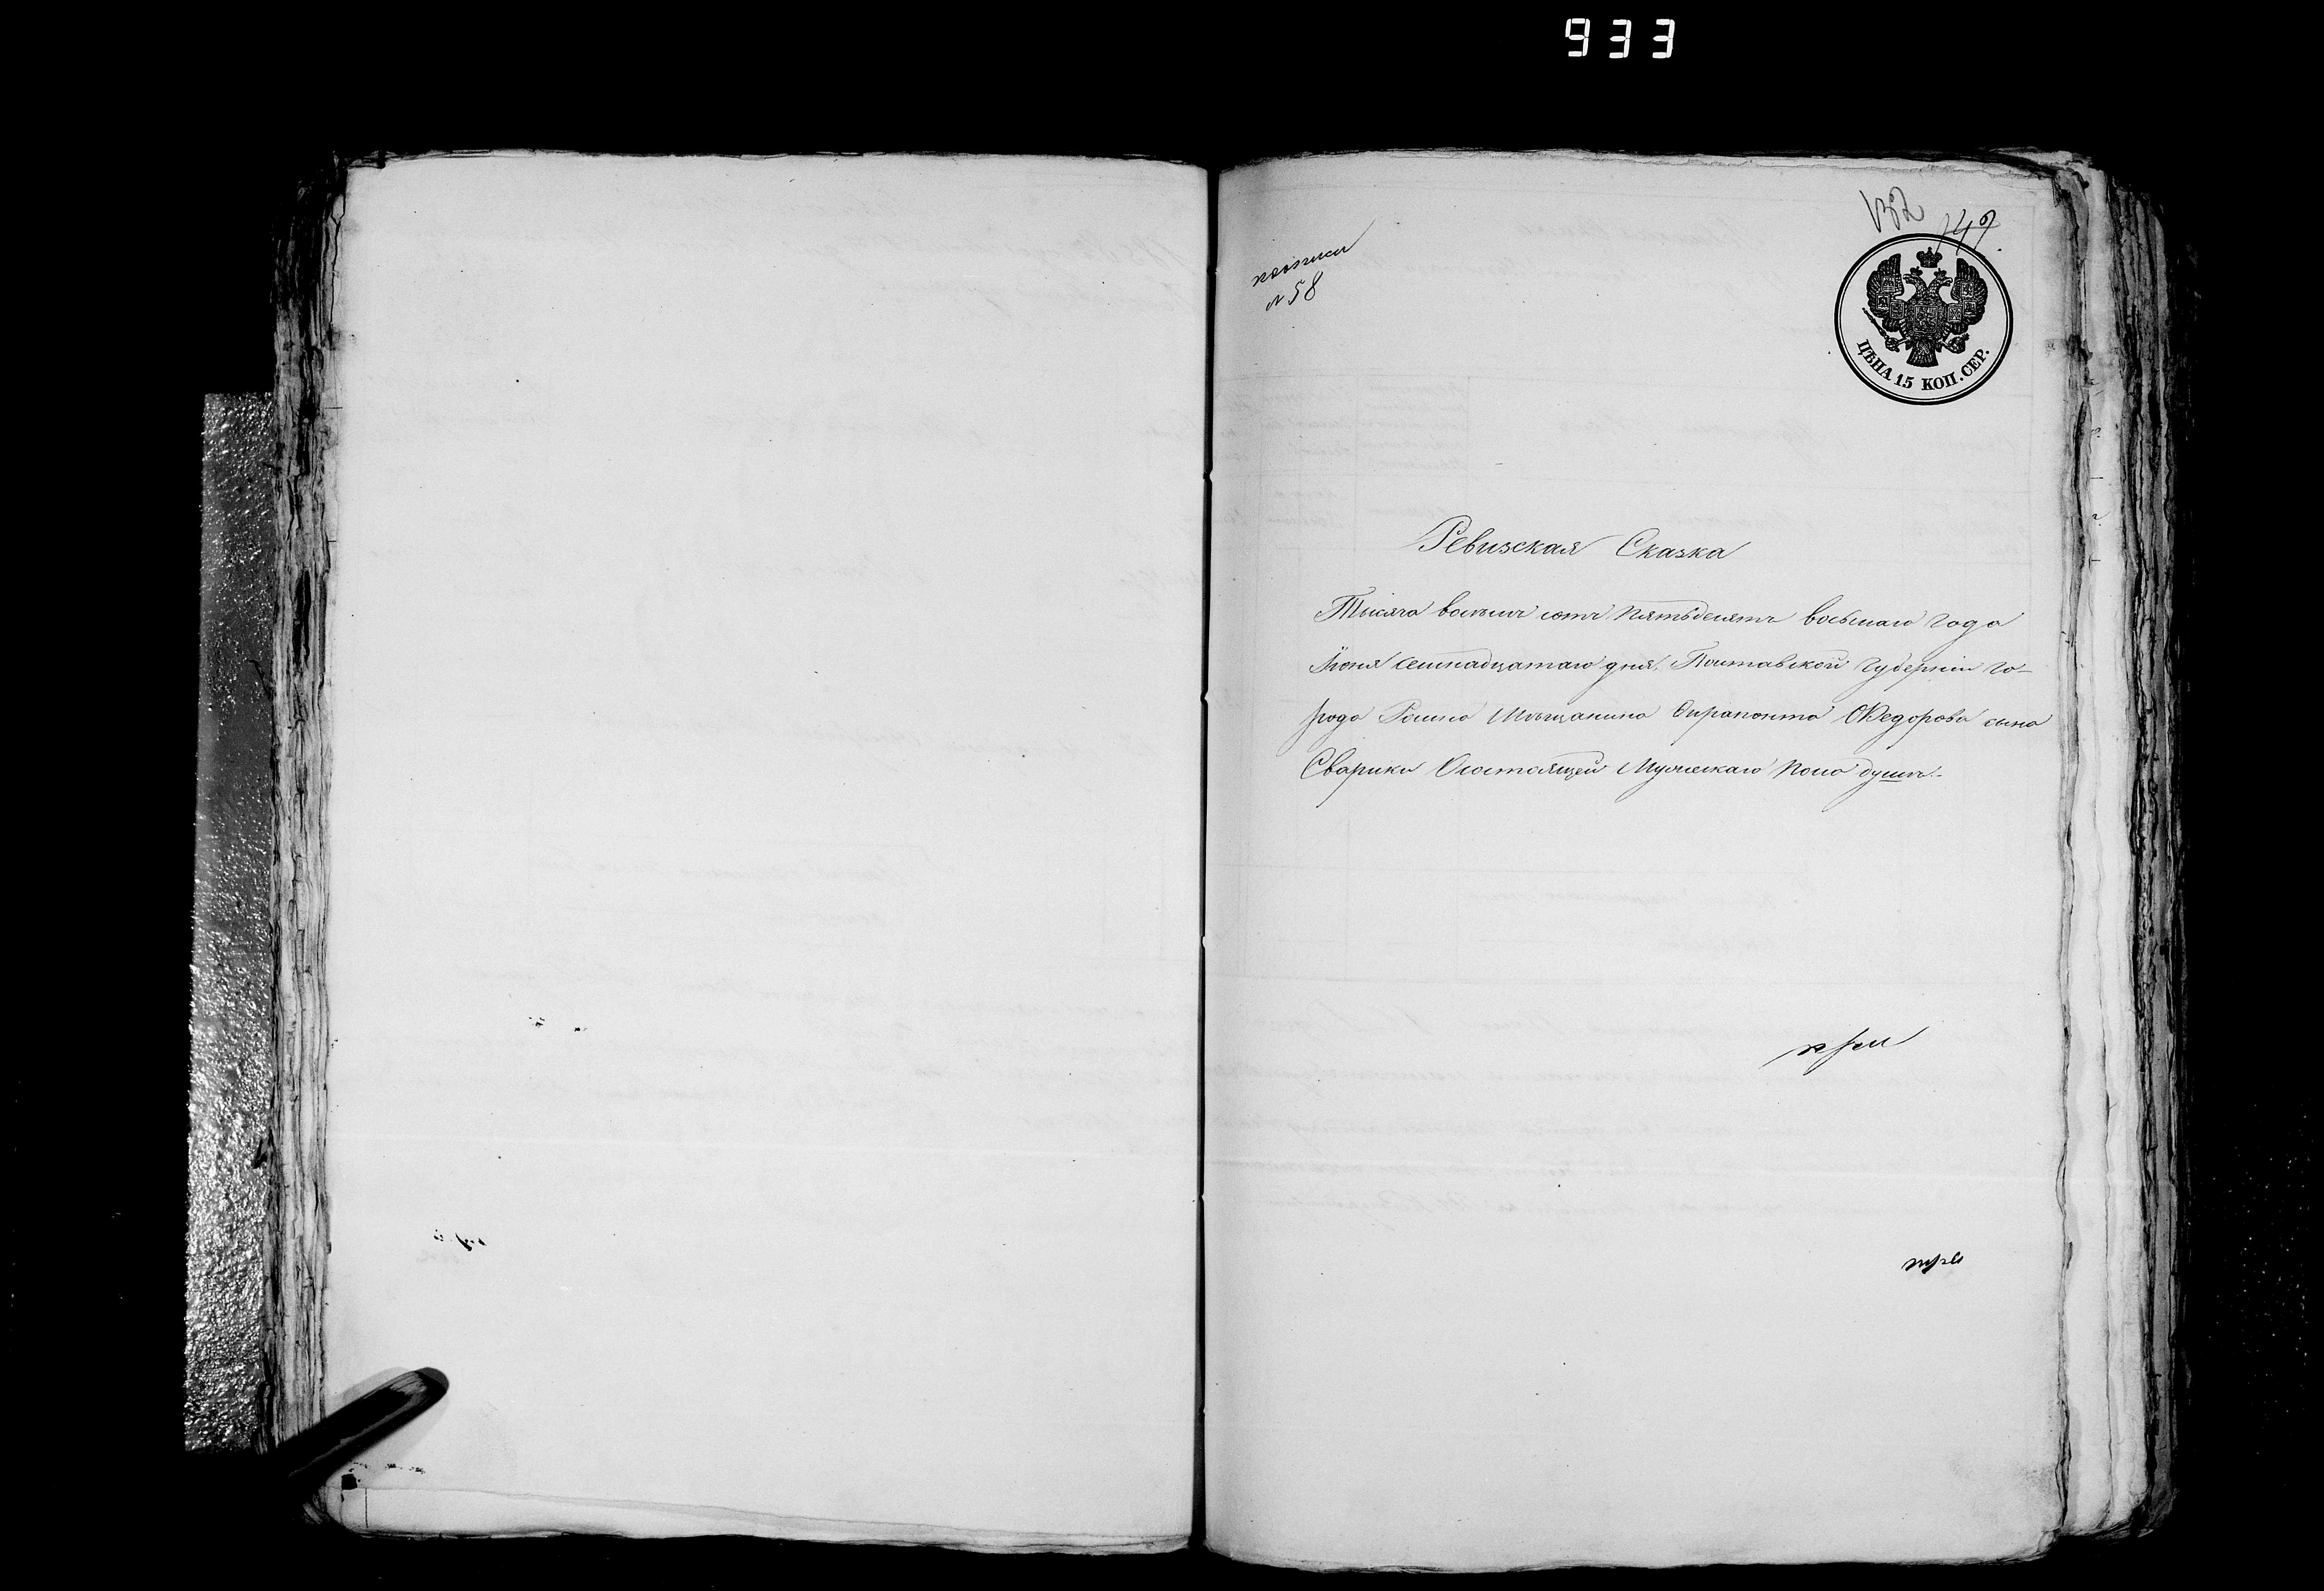 933
132
147.
№ 58
ЦѢНА 15 КОП. СЕР.
Ревизская Сказка
Тысяча восемь сотъ пятьдесятъ восьмаго года
Іюня семнадцатаго дня, Полтавской губерніи го-
рода Ромна Мѣщанина Ферапонта Федорова сына
Сварики О состоящей Мужескаго пола душъ.